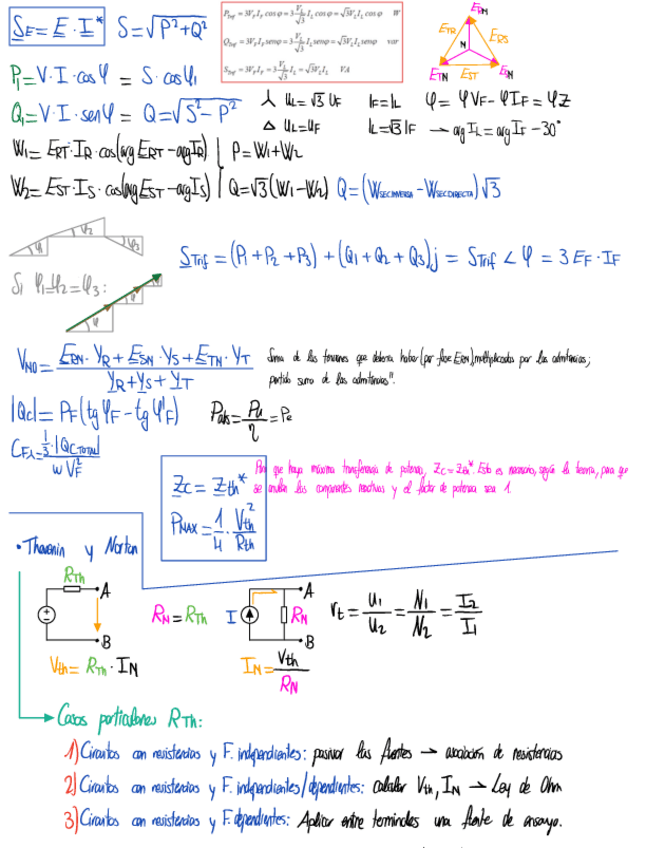 S_E = E · I*   S = √P²+Q²
P_Trif = 3V_F I_F cos φ = 3 V_L/√3 I_L cos φ = √3 V_L I_L cos φ   W
Q_Trif = 3V_F I_F sen φ = 3 V_L/√3 I_L sen φ = √3 V_L I_L sen φ   var
S_Trif = 3 V_F I_F = 3 V_L/√3 I_L = √3 V_L I_L   VA
E_RN
E_TR E_RS
N
E_TN E_ST E_SN
P₁ = V · I · cos φ = S · cos φ₁
Q₁ = V · I · sen φ = Q = √S² - P²
⅄ U_L = √3 U_F   I_F = I_L   φ = φV_F - φI_F = φZ
Δ U_L = U_F   I_L = √3 I_F → arg I_L = arg I_F - 30°
W₁ = E_RT · I_R · cos(arg E_RT - arg I_R) | P = W₁ + W₂
W₂ = E_ST · I_S · cos(arg E_ST - arg I_S) | Q = √3 (W₁ - W₂) Q = (W_SECINVERSA - W_SECDIRECTA) √3
φ₁ φ₂ φ₃
S_Trif = (P₁ + P₂ + P₃) + (Q₁ + Q₂ + Q₃)j = S_Trif ∠ φ = 3 E_F · I_F
Si φ₁ = φ₂ = φ₃ :
φ
V_N0 = (E_RN · Y_R + E_SN · Y_S + E_TN · Y_T) / (Y_R + Y_S + Y_T)
Suma de las tensiones que debería haber (por fase E_RN), multiplicadas por las admitancias;
partido suma de las admitancias".
|Qc| = P_F (tg φ_F - tg φ'_F)   P_abs = P_u/η = P_e
C_Fλ = (1/3 · |Q_C TOTAL|) / (w V_F²)
Z_C = Z_th*
P_MAX = 1/4 · V_th² / R_th
Para que haya máxima transferencia de potencia, Z_C = Z_th*. Esto es necesario, según la teoría, para que
se anulen las componentes reactivas y el factor de potencia sea 1.
• Thevenin y Norton
R_Th A
B
V_th = R_Th · I_N
R_N = R_Th
I R_N A
B
I_N = V_th / R_N
r_t = U₁/U₂ = N₁/N₂ = I₂/I₁
Casos particulares R_Th:
1) Circuitos con resistencias y F. independientes: pasivar las fuentes → asociación de resistencias
2) Circuitos con resistencias y F. independientes/dependientes: calcular V_th, I_N → Ley de Ohm
3) Circuitos con resistencias y F. dependientes: Aplicar entre terminales una fuente de ensayo.